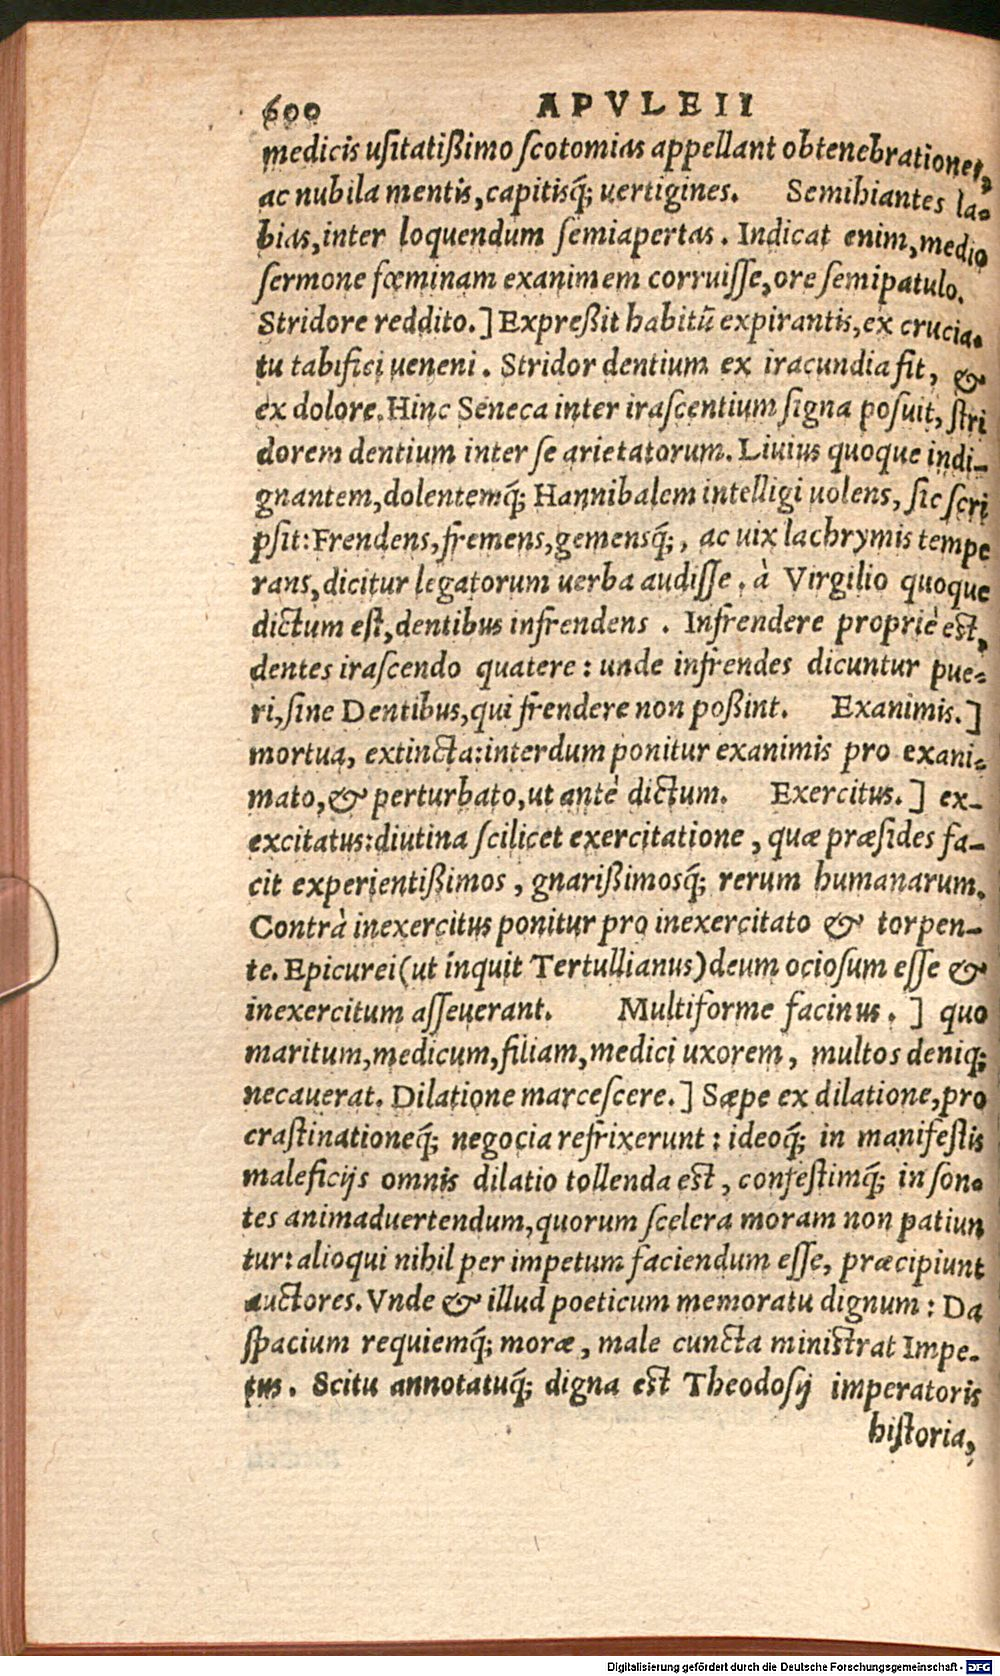 600 APVLEII
medicis usitatißimo scotomias appellant obtenebrationes,
ac nubila mentis, capitisq́; uertigines. Semihiantes la-
bias, inter loquendum semiapertas. Indicat enim, medio
sermone fœminam exanimem corruisse, ore semipatulo.
Stridore reddito.] Expreßit habitũ expirantis, ex crucia-
tu tabifici ueneni. Stridor dentium ex iracundia fit, &
ex dolore. Hinc Seneca inter irascentium signa posuit, stri
dorem dentium inter se arietatorum. Liuius quoque indi-
gnantem, dolentemq́; Hannibalem intelligi uolens, sic scri
psit: Frendens, fremens, gemensq́;, ac uix lachrymis tempe
rans, dicitur legatorum uerba audisse. à Virgilio quoque
dictum est, dentibus infrendens. Infrendere propriè est,
dentes irascendo quatere: unde infrendes dicuntur pue-
ri, sine Dentibus, qui frendere non poßint. Exanimis.]
mortua, extincta: interdum ponitur exanimis pro exani-
mato, & perturbato, ut antè dictum. Exercitus.] ex-
excitatus: diutina scilicet exercitatione, quæ præsides fa-
cit experientißimos, gnarißimosq́; rerum humanarum.
Contrà inexercitus ponitur pro inexercitato & torpen-
te. Epicurei (ut inquit Tertullianus) deum ociosum esse &
inexercitum asseuerant. Multiforme facinus.] quo
maritum, medicum, filiam, medici uxorem, multos deniq;
necauerat. Dilatione marcescere.] Sæpe ex dilatione, pro
crastinationeq́; negocia refrixerunt: ideoq́; in manifestis
maleficijs omnis dilatio tollenda est, confestimq́; in son-
tes animaduertendum, quorum scelera moram non patiun
tur: alioqui nihil per impetum faciendum esse, præcipiunt
auctores. Vnde & illud poeticum memoratu dignum: Da
spacium requiemq́; moræ, male cuncta ministrat Impe-
tus. Scitu annotatuq́; digna est Theodosij imperatoris
historia,
Digitalisierung gefördert durch die Deutsche Forschungsgemeinschaft - DFG